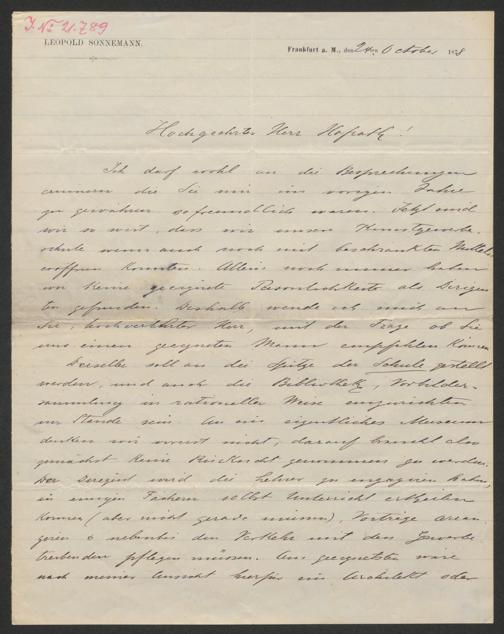 J. No 21,789
LEOPOLD SONNEMANN.
Frankfurt a. M., den October 1878
Hochgeehrter Herr Hofrath!
Ich darf wohl an die Besprechungen
erinnern die Sie mir im vorigen Jahre
zu gewähren so freundlich waren. Jetzt sind
wir so weit, dass wir unsere Kunstgewerbe-
schule wenn auch noch mit beschränkten Mitteln
eröffnen konnten. Allein noch immer haben
wir keine geeignete Persönlichkeit als Dirigen
ten gefunden. Deshalb wende ich mich an
Sie, hochverehrter Herr, mit der Frage ob Sie
uns einen geeigneten Mann empfehlen können
Derselbe soll an die Spitze der Schule gestellt
werden, und auch die Bibliothek, Vorbilder-
sammlung in rationeller Weise einzurichten
im Stande sein. An ein eigentliches Museum
denken wir vorerst nicht, darauf braucht also
zunächst keine Rücksicht genommen zu werden.
Der Dirigent wird die Lehrer zu engagiren haben,
in einigen Fächern selbst Unterricht ertheilen
können (aber nicht gerade müssen), Vorträge arran
giren & nebenbei den Verkehr mit den Gewerbe
treibenden pflegen müssen. Am geeignetsten wäre
nach meiner Ansicht hierfür ein Architekt oder